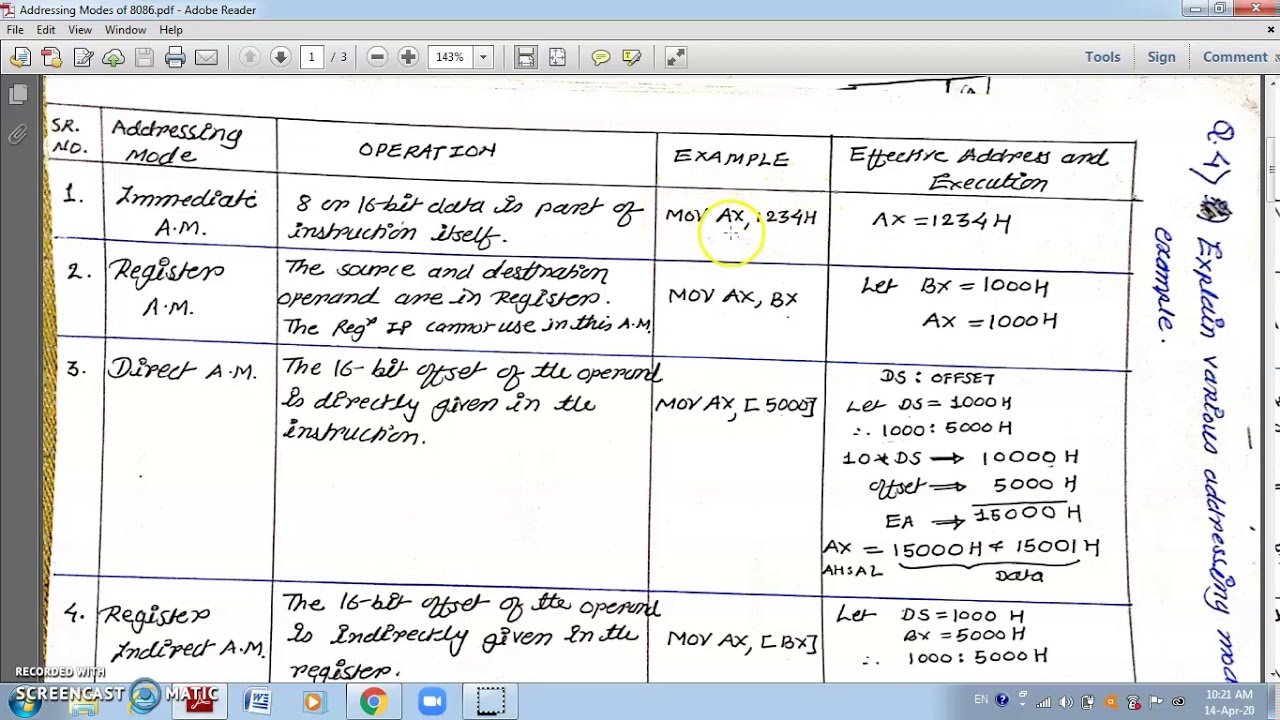 Addressing Modes of 8086.pdf - Adobe Reader
File Edit View Window Help
1 / 3 143% Tools Sign Comment
SR. NO. Addressing Mode OPERATION EXAMPLE Effective Address and Execution
1. Immediate A.M.
8 or 16-bit data is part of
instruction itself.
MOV AX, 1234H
AX = 1234H
2. Register A.M.
The source and destination
operand are in Register.
The Regr IP cannot use in this A.M.
MOV AX, BX
Let BX = 1000H
AX = 1000H
3. Direct A.M.
The 16-bit offset of the operand
is directly given in the
instruction.
MOV AX, [5000]
DS : OFFSET
Let DS = 1000H
∴ 1000 : 5000 H
10*DS → 10000 H
offset → 5000 H
EA → 15000 H
AX = 15000H & 15001H
AH & AL Data
4. Register
Indirect A.M.
The 16-bit offset of the operand
is indirectly given in the
register.
MOV AX, [BX]
Let DS = 1000 H
BX = 5000H
∴ 1000 : 5000H
Q.4) Explain various addressing
example.
RECORDED WITH
SCREENCAST MATIC
EN
10:21 AM
14-Apr-20